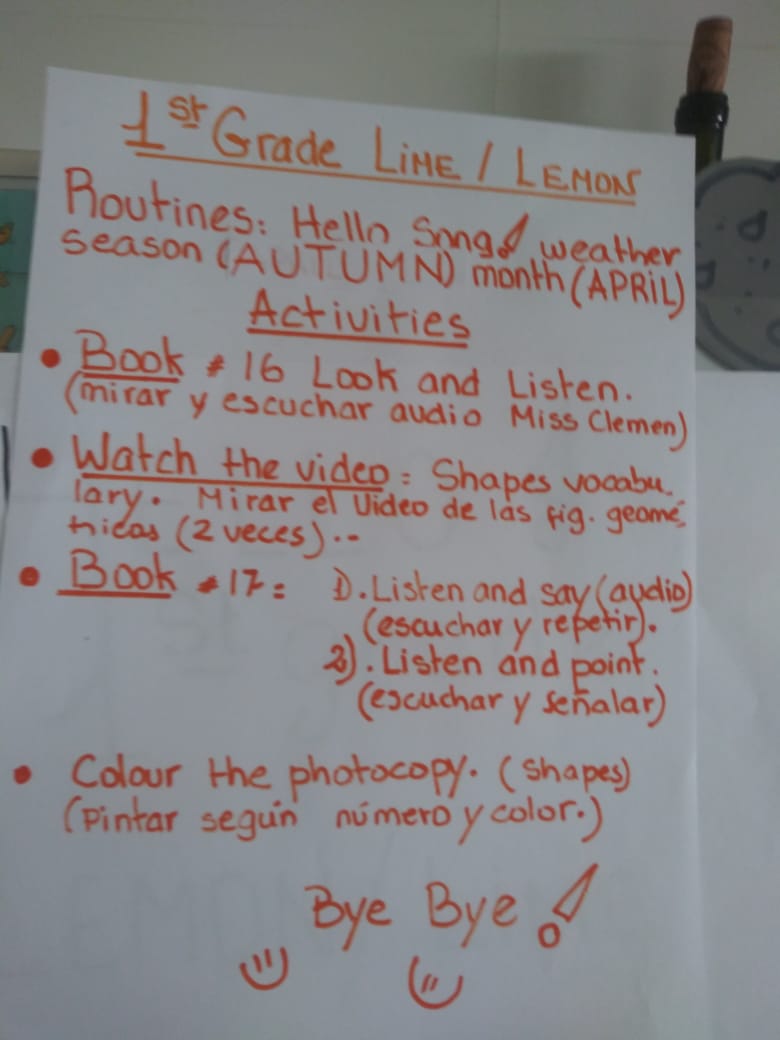 1st Grade LIME / LEMON
Routines: Hello Song! weather
season (AUTUMN) month (APRIL)
Activities
• Book # 16 Look and Listen.
(mirar y escuchar audio Miss Clemen)
• Watch the video: Shapes vocabu.
lary. Mirar el Video de las fig. geomé
tricas (2 veces)...
• Book # 17: 1). Listen and say (audio)
(escuchar y repetir).
2). Listen and point.
(escuchar y señalar)
• Colour the photocopy. (Shapes)
(Pintar según número y color.)
Bye Bye!